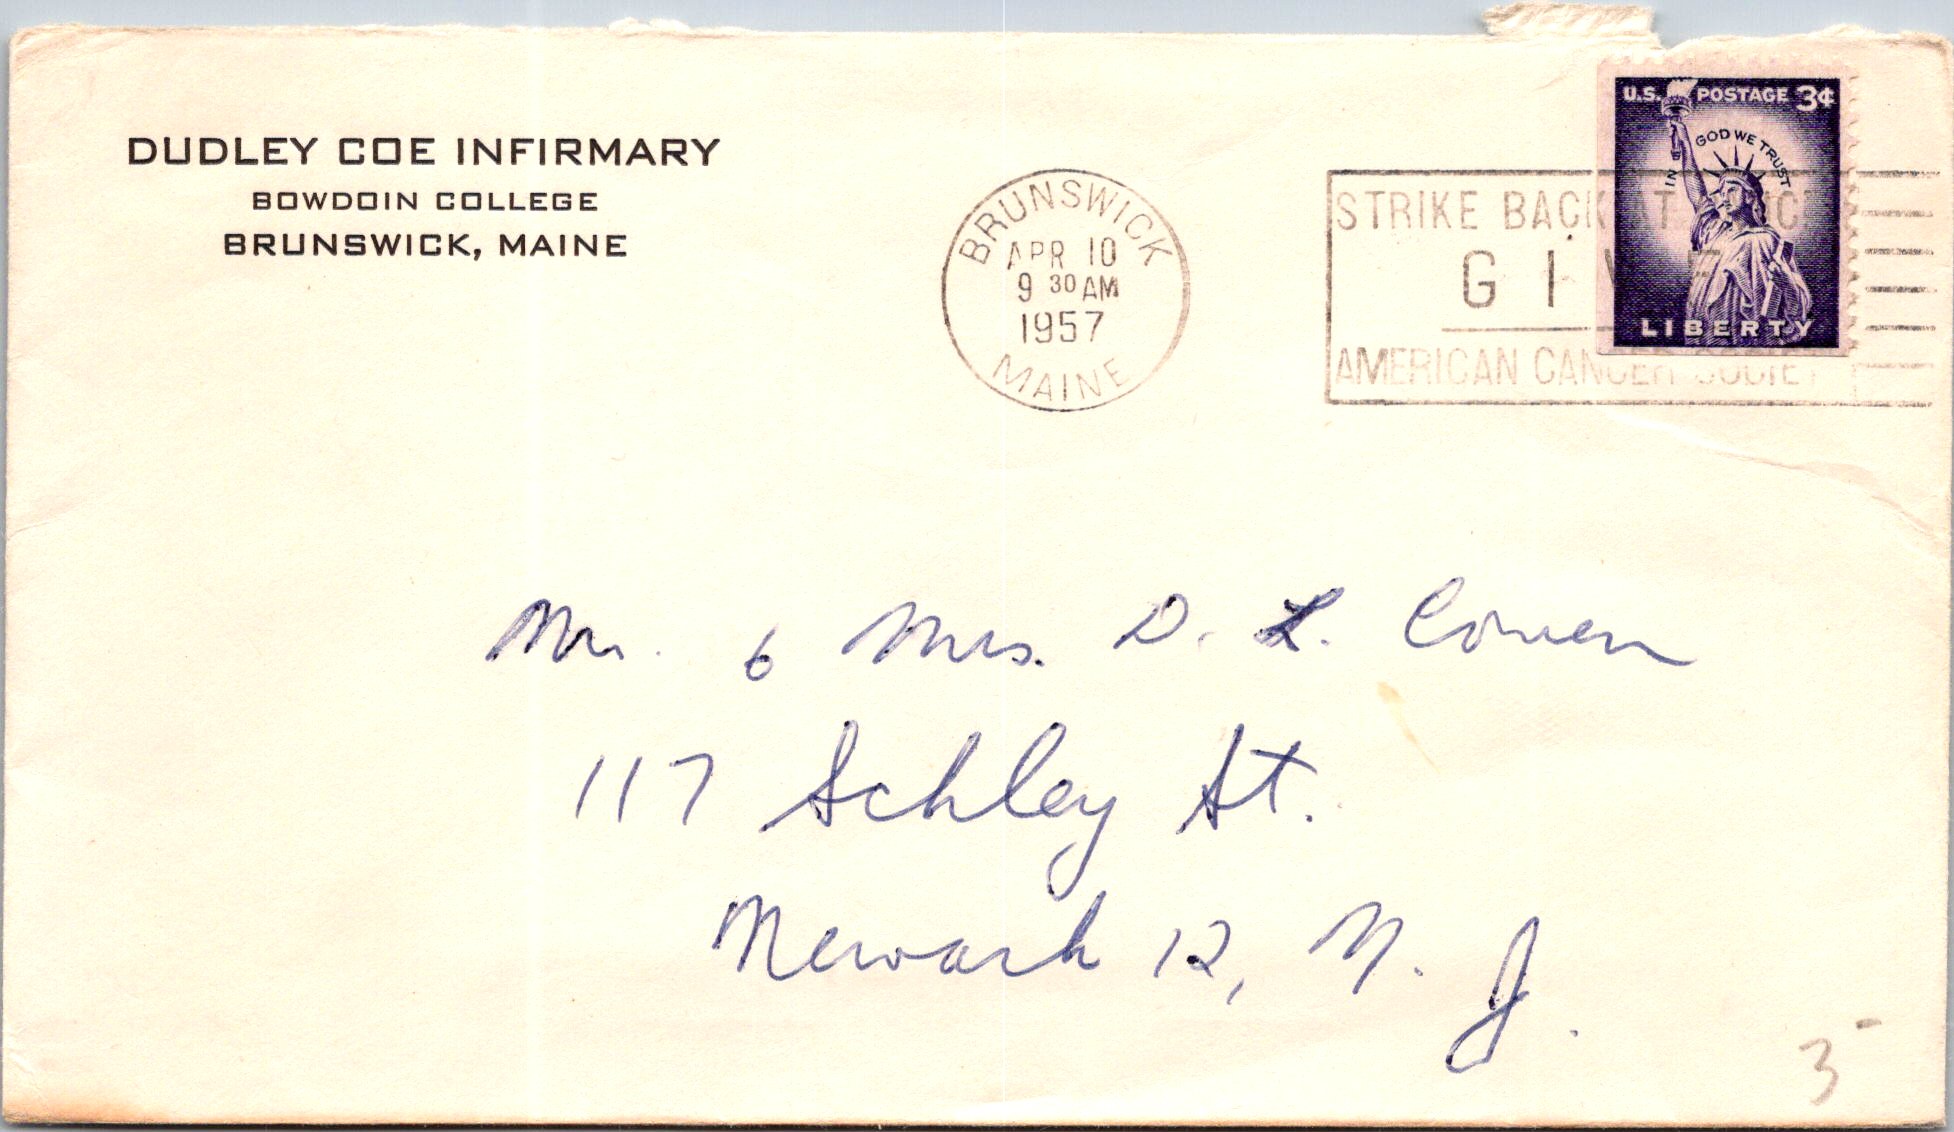 DUDLEY COE INFIRMARY
BOWDOIN COLLEGE
BRUNSWICK, MAINE
BRUNSWICK
APR 10
9 30 AM
1957
MAINE
STRIKE BACK AT
GIVE
AMERICAN CANCER SOCIETY
U.S. POSTAGE 3¢
IN GOD WE TRUST
LIBERTY
Mr. & Mrs. D. L. Cowen
117 Schley St.
Newark 12, N. J.
3-